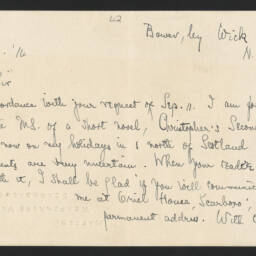 62
Bower, by Wick
N.
'16
Sir
ordance with your request of Sep. 11. I am for
MS. of a short novel, Christopher's Secon
now on my holidays in north of Scotland
ents are very uncertain. When your reader
it, I shall be glad if you will communic
me at Oriel House, Scarboro',
permanent address. With